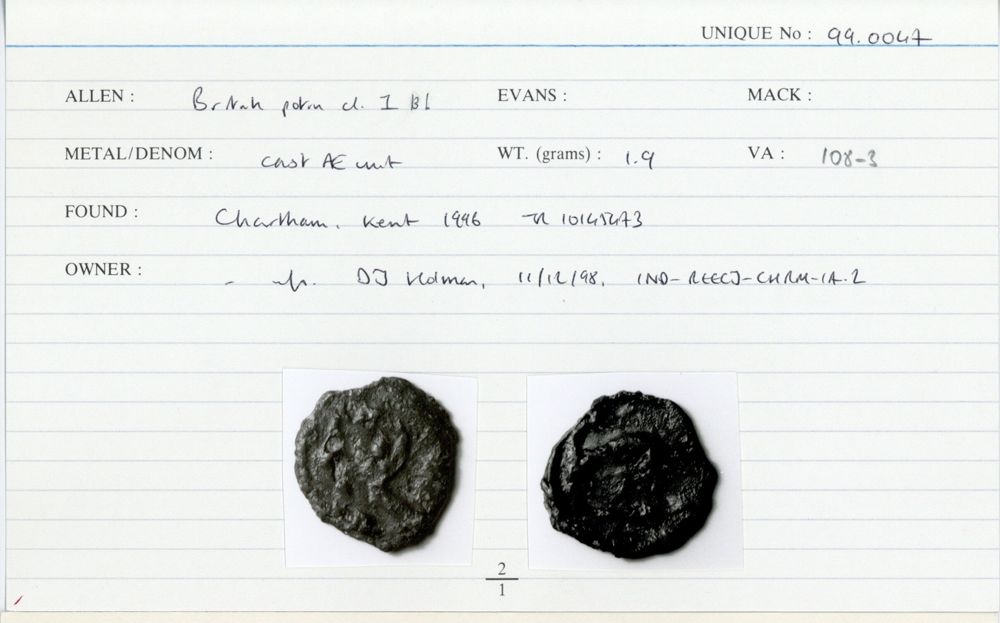 UNIQUE No : 99.0047
ALLEN : British potin cl. I B1 EVANS : MACK :
METAL/DENOM : cast Æ unit WT. (grams) : 1.9 VA : 108-3
FOUND : Chartham, Kent 1996 TR 10145473
OWNER : - DJ Holman, 11/12/98, IND-REECJ-CHRM-IA.2
2
1